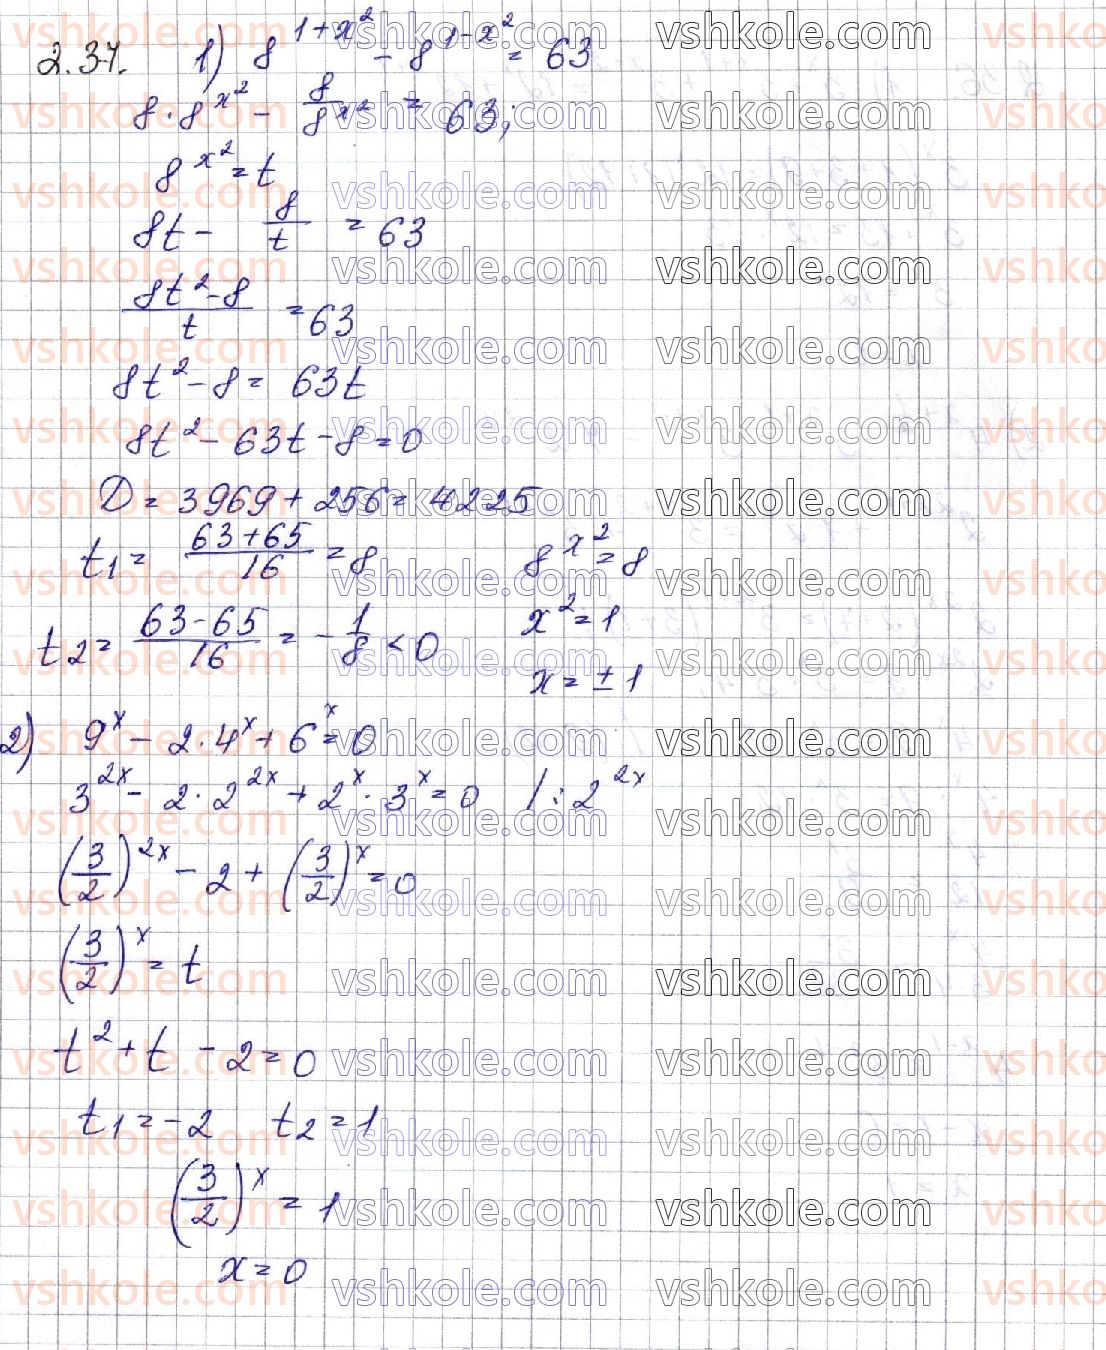 2.37. 1) 8^(1+x²) - 8^(1-x²) = 63
8·8^(x²) - 8/8^(x²) = 63;
8^(x²) = t
8t - 8/t = 63
(8t² - 8)/t = 63
8t² - 8 = 63t
8t² - 63t - 8 = 0
D = 3969 + 256 = 4225
t1 = (63+65)/16 = 8    8^(x²) = 8
t2 = (63-65)/16 = -1/8 < 0    x² = 1
x = ±1
2) 9^x - 2·4^x + 6^x = 0
3^(2x) - 2·2^(2x) + 2^x·3^x = 0 /: 2^(2x)
(3/2)^(2x) - 2 + (3/2)^x = 0
(3/2)^x = t
t² + t - 2 = 0
t1 = -2    t2 = 1
(3/2)^x = 1
x = 0
vshkole.com